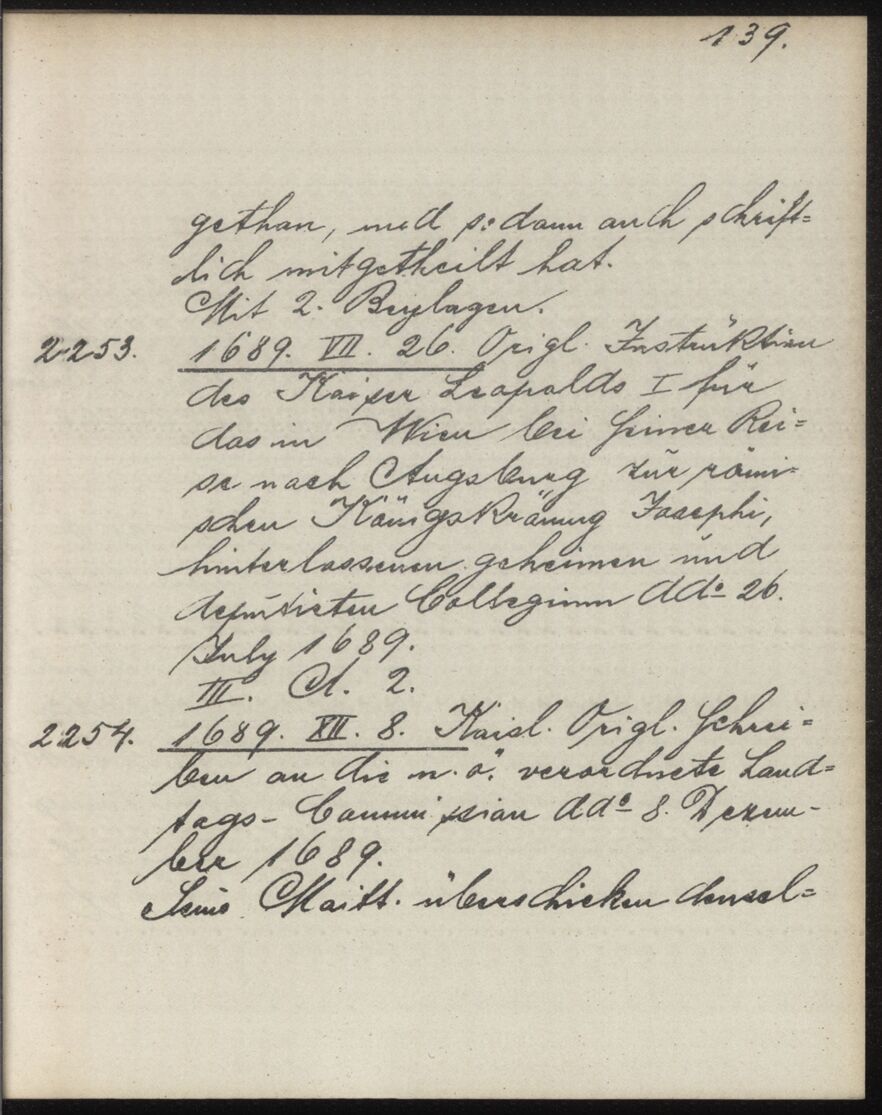 139.
gethan, und sodann auch schrift=
lich mitgetheilt hat.
Mit 2. Beylagen.
2253. 1689. VII. 26. Origl. Instruktion
des Kaiser Leopolds I für
das in Wien bei seiner Rei=
se nach Augsburg zur römi=
schen Königskrönung Josephi,
hinterlassenen geheimen und
deputirten Collegium ddo 26.
July 1689.
III. A. 2.
2254. 1689. XII. 8. Kaisl. Origl. Schrei=
ben an die n. ö. verordnete Land=
tags-Commission ddo 8. Dezem-
ber 1689.
Seine Maitt. überschicken densel=